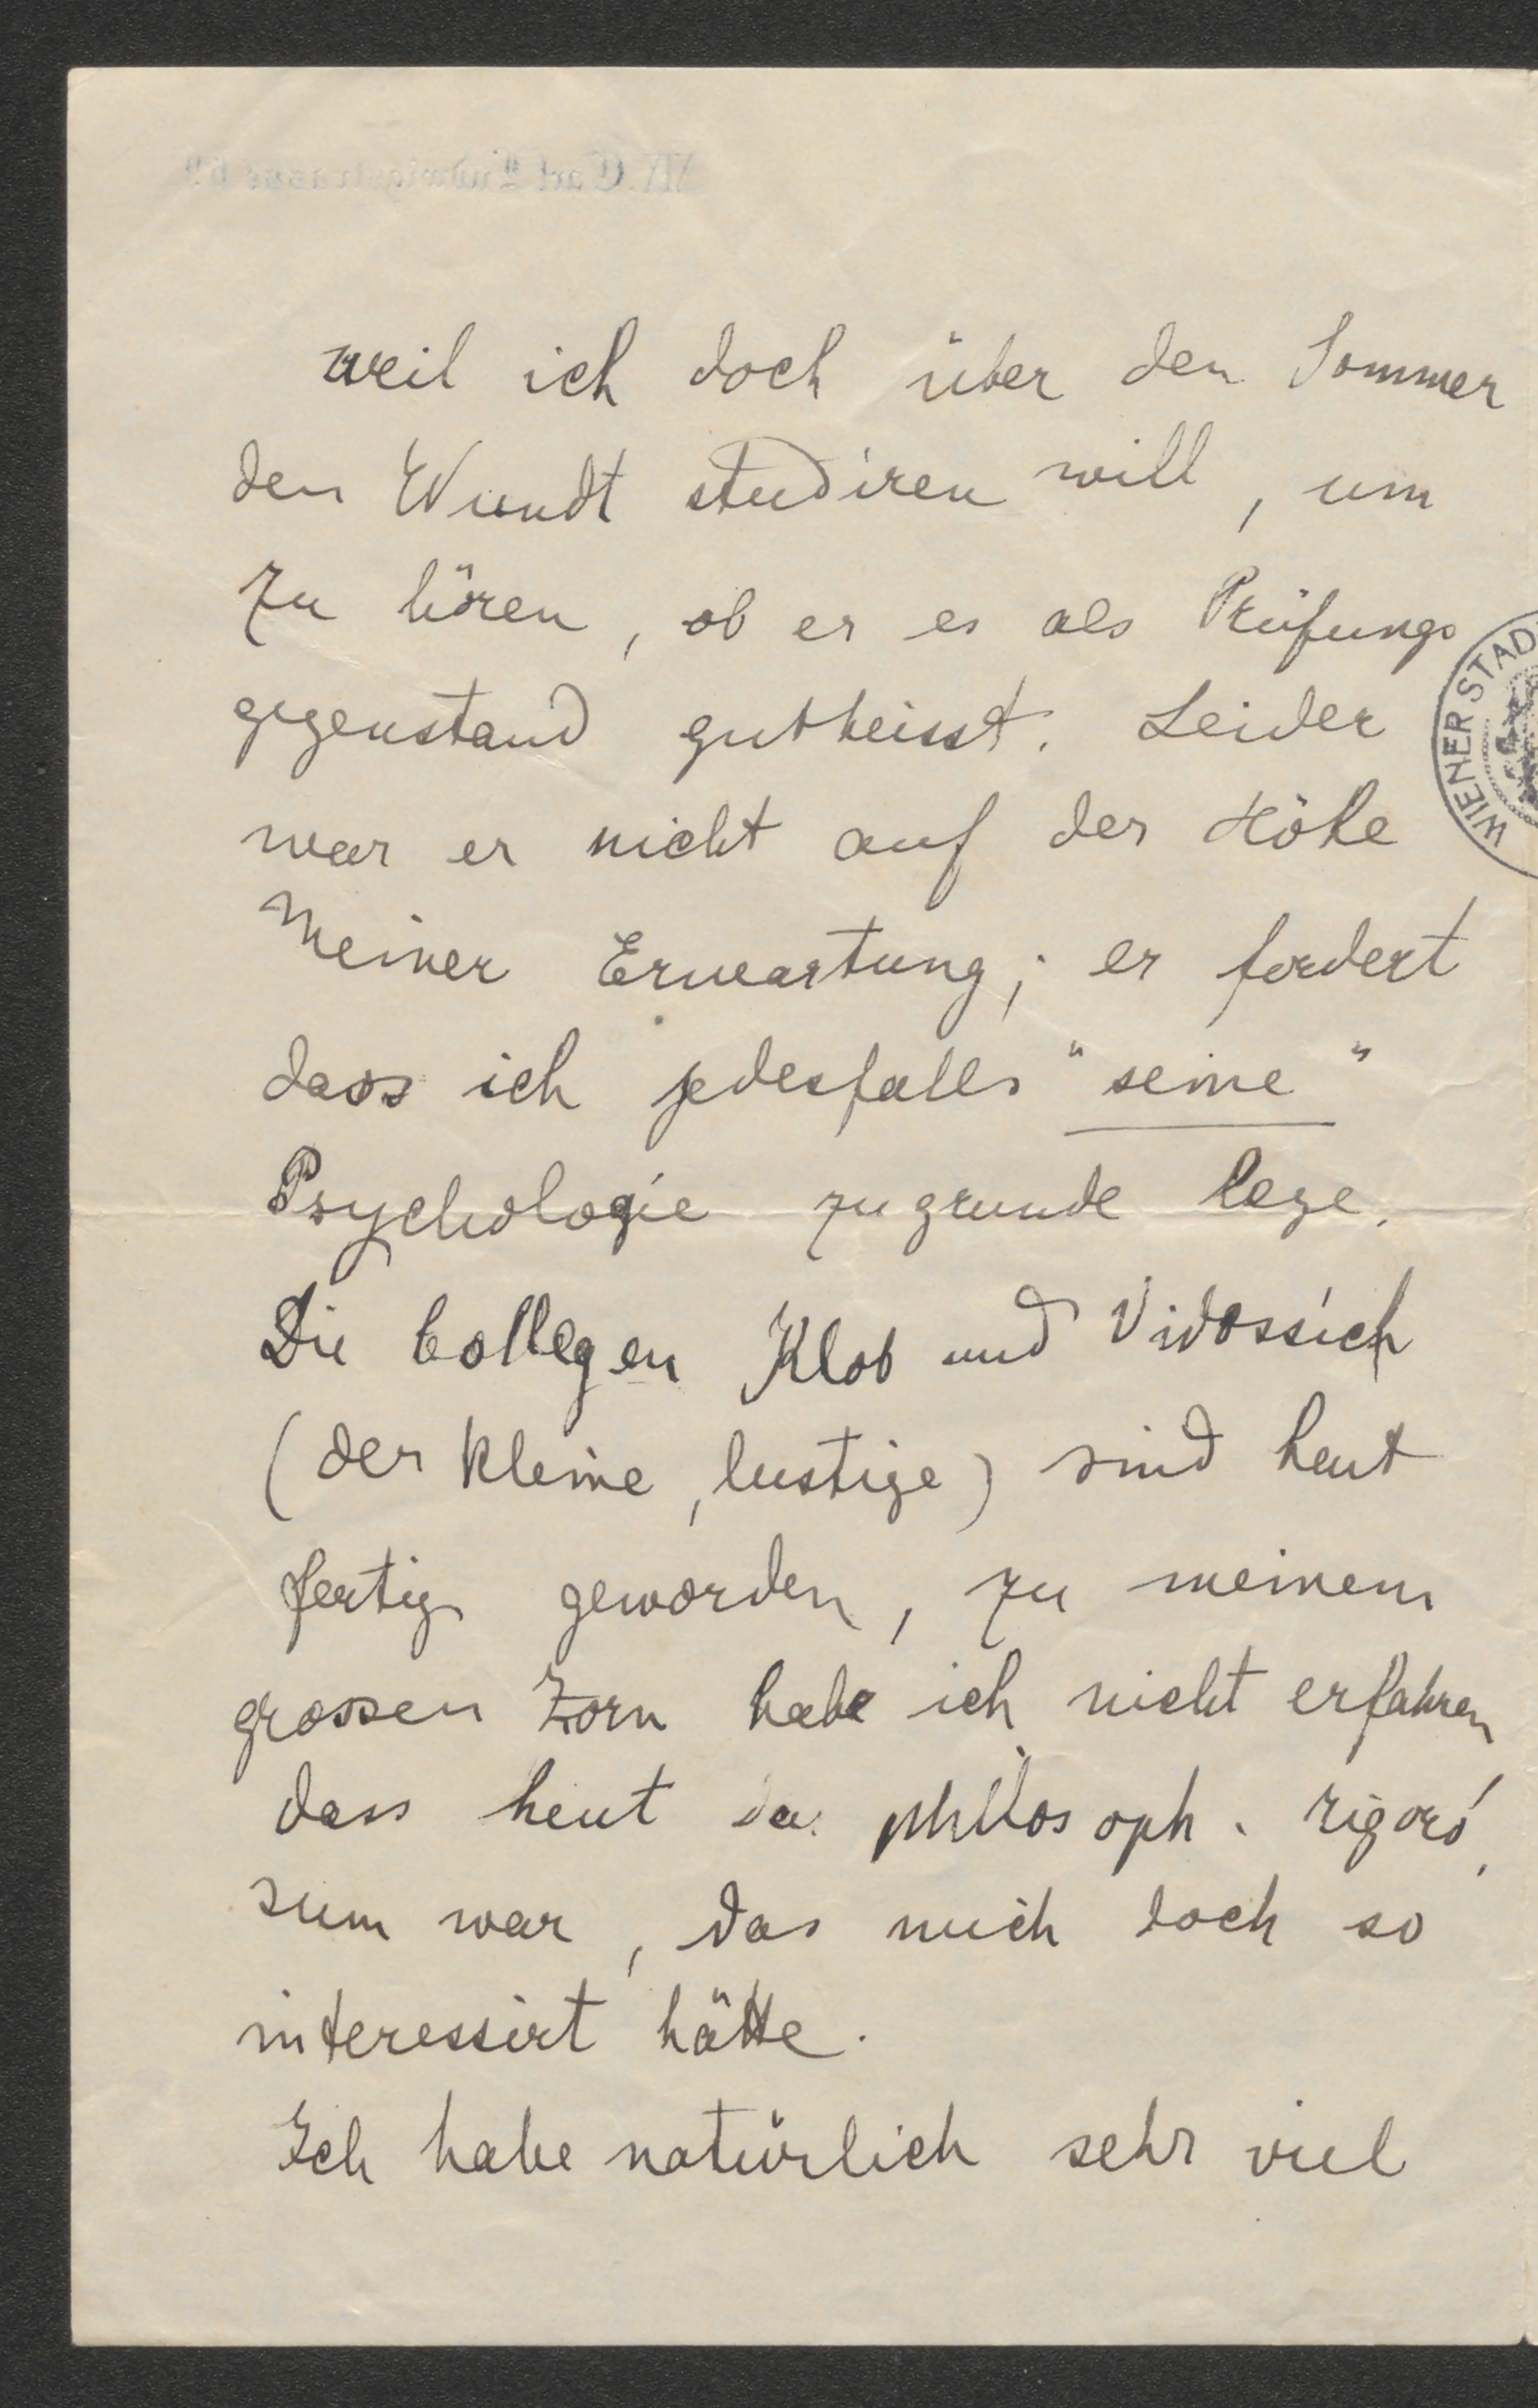 XIX. Carl Ludwigstrasse 62
weil ich doch über den Sommer
den Wundt studiren will, um
zu hören, ob er es als Prüfungs
gegenstand gutheisst. Leider
war er nicht auf der Höhe
meiner Erwartung; er fordert
dass ich jedesfalls "seine"
Psychologie zugrunde lege.
Die Collegen Klob und Vidossich
(der kleine, lustige) sind heut
fertig geworden, zu meinem
grossen Zorn habe ich nicht erfahren
dass heut das philosoph. rigoro
sum war, das mich doch so
interessirt hätte.
Ich habe natürlich sehr viel
WIENER STAD